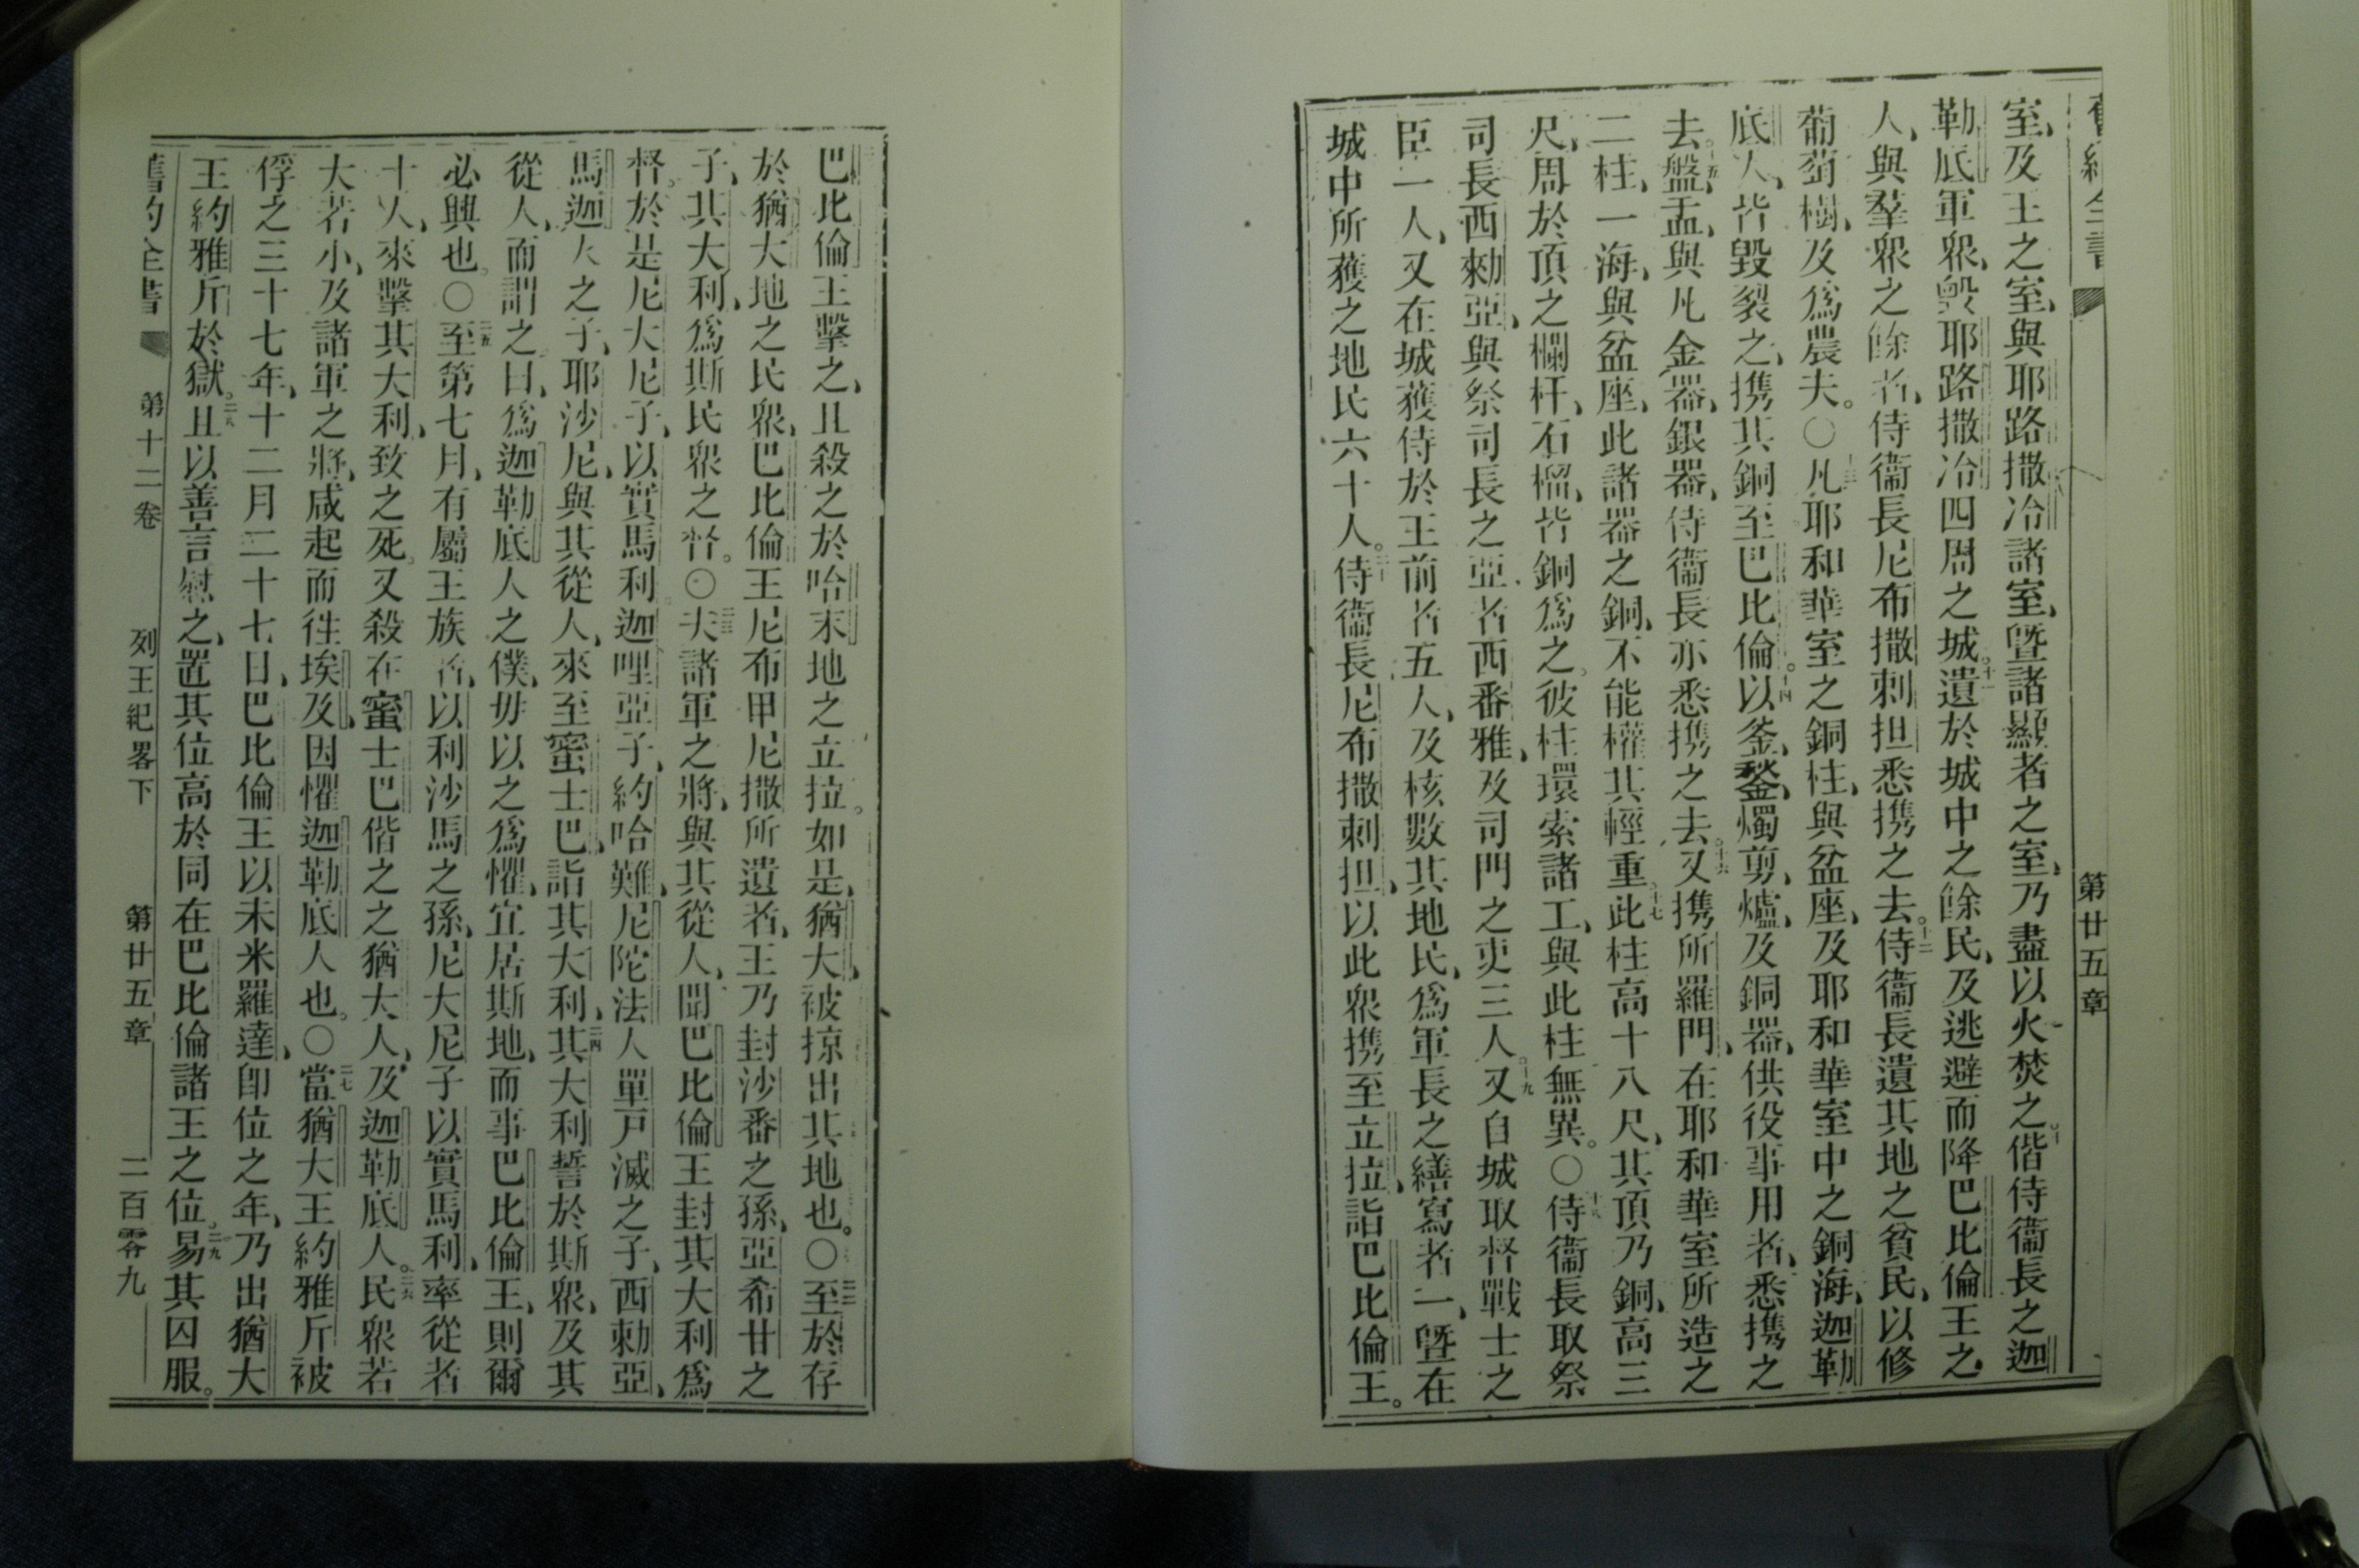 舊約全書 第廿五章
室、及王之室、與耶路撒冷諸室、曁諸顯者之室、乃盡以火焚之。十偕侍衞長之迦
勒底軍衆、毁耶路撒冷四周之城。十一遺於城中之餘民、及逃避而降巴比倫王之
人、與羣衆之餘者、侍衞長尼布撒剌担悉携之去。十二侍衞長遺其地之貧民、以修
葡萄樹、及爲農夫。〇十三凡耶和華室之銅柱、與盆座、及耶和華室中之銅海、迦勒
底人、皆毀裂之、携其銅至巴比倫。十四以釜、鍫、燭剪、爐、及銅器、供役事用者、悉携之
去。十五盤、盂、與凡金器、銀器、侍衞長亦悉携之去。十六又携所羅門、在耶和華室所造之
二柱、一海、與盆座、此諸器之銅、不能權其輕重。十七此柱高十八尺、其頂乃銅、高三
尺、周於頂之欄杆、石榴、皆銅爲之。彼柱環索諸工、與此柱無異。〇十八侍衞長取祭
司長西勑亞、與祭司長之亞者西番雅、及司門之吏三人。十九又自城取督戰士之
臣一人、又在城獲侍於王前者五人、及核數其地民、爲軍長之繕寫者一、曁在
城中所獲之地民六十人。二十侍衞長尼布撒剌担、以此衆携至立拉、詣巴比倫王。
巴比倫王擊之、且殺之於哈末地之立拉。如是、猶大、被掠出其地也。〇二二至於存
於猶大地之民衆、巴比倫王尼布甲尼撒所遺者、王乃封沙番之孫、亞希甘之
子、其大利、爲斯民衆之督。〇二三夫諸軍之將、與其從人、聞巴比倫王封其大利爲
督。於是尼大尼子、以實馬利迦哩亞子、約哈難、尼陀法人單戸滅之子、西勑亞、
馬迦人之子、耶沙尼、與其從人、來至蜜士巴、詣其大利、二四其大利誓於斯衆、及其
從人、而謂之曰、爲迦勒底人之僕、毋以之爲懼、宜居斯地、而事巴比倫王、則爾
必興也。〇二五至第七月、有屬王族者、以利沙馬之孫、尼大尼子以實馬利、率從者
十人、來擊其大利、致之死。又殺在蜜士巴偕之之猶大人、及迦勒底人。二六民衆若
大若小、及諸軍之將、咸起而往埃及、因懼迦勒底人也。〇二七當猶大王約雅斤被
俘之三十七年、十二月二十七日、巴比倫王以未米羅達、卽位之年、乃出猶大
王約雅斤於獄。二八且以善言慰之、置其位高於同在巴比倫諸王之位。二九易其囚服。
舊約全書 第十二卷 列王紀畧下 第廿五章 二百零九